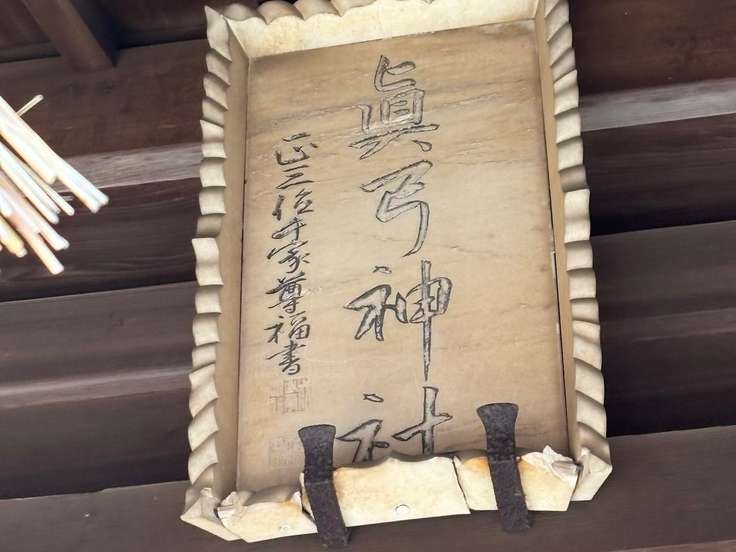 眞弓神社
正三位千家尊福書